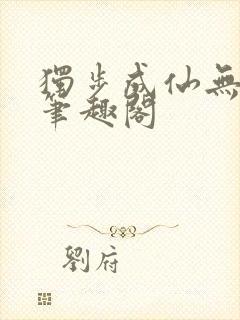 獨步成仙無
筆趣閣
劉府